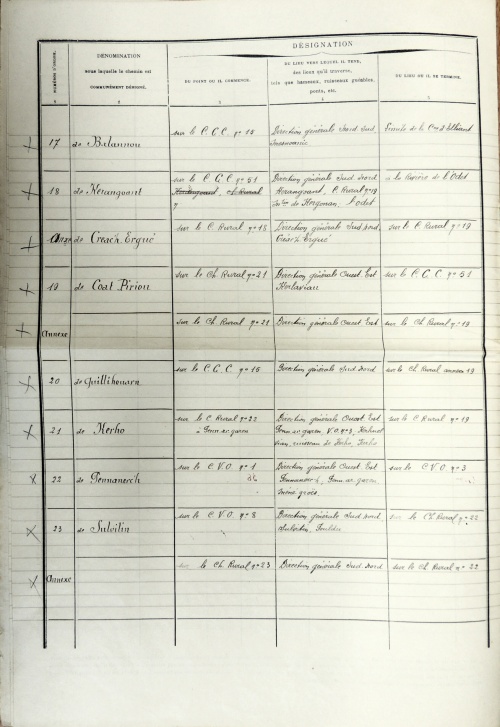 DÉSIGNATION
NUMÉROS D'ORDRE.
DÉNOMINATION
sous laquelle le chemin est
COMMUNÉMENT DÉSIGNÉ.
DU POINT OÙ IL COMMENCE.
DU LIEU VERS LEQUEL IL TEND,
des lieux qu'il traverse,
tels que hameaux, ruisseaux guéables,
ponts, etc.
DU LIEU OÙ IL SE TERMINE.
17 de Balannou sur le C.G.C. no 15 Direction générale Nord Sud limite de la Cne d'Elliant
18 de Kerangoant sur le C.G.C. no 51 Direction générale Sud Nord à la Rivière de l'Odet
Kerangoant ch Rural Kerangoant, C. Rural no 19
de Kergonan, l'odet
Annexe de Creac'h Ergué sur le C. Rural no 18 Direction générale Sud Nord sur le C. Rural no 19
Créac'h Ergué
19 de Coat Piriou sur le Ch Rural no 21 Direction générale Ouest Est sur le C.G.C. no 51
Kerlavian
Annexe sur le Ch Rural no 21 Direction générale Ouest Est sur le Ch Rural no 19
20 de Quillihouarn sur le C.G.C. no 15 Direction générale Sud Nord sur le Ch Rural annexe 19
21 de Kerho sur le C Rural no 22 Direction générale Ouest Est sur le C Rural no 19
à Penn ar guen Penn ar guen, V.O. no 3,
ruisseau de Kerho, Kerho
22 de Pennanerch sur le C.V.O. no 1 Direction générale Ouest Est sur le C.V.O. no 3
Pennanerch, Penn ar guen
23 de Sulvilin sur le C.V.O. no 8 Direction générale Sud Nord sur le Ch Rural no 22
Sulvilin, Pouldu
Annexe sur le Ch Rural no 23 Direction générale Sud Nord sur le Ch Rural no 22